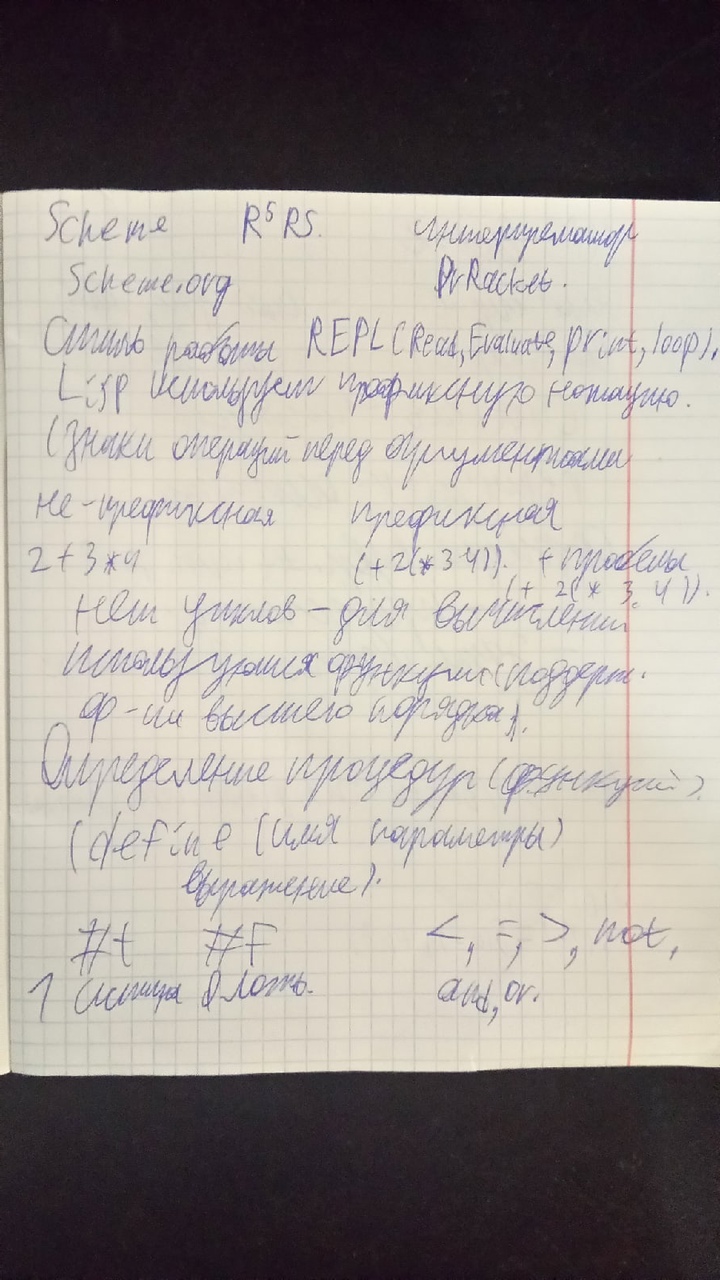 Scheme R⁵RS. интерпретатор
Scheme.org DrRacket.
Стиль работы REPL (Read, Evaluate, print, loop).
Lisp использует префиксную нотацию.
(знаки операций перед аргументами
не-префиксная префиксная
2+3*4 (+2(*34)). + пробелы
(+ 2(* 3 4)).
Нет циклов – для вычислений
используются функции (поддерж.
ф-ии высшего порядка).
Определение процедур (функций).
(define (имя параметры)
выражение).
#t #F <, =, >, not,
1 истина 0 ложь. and, or.